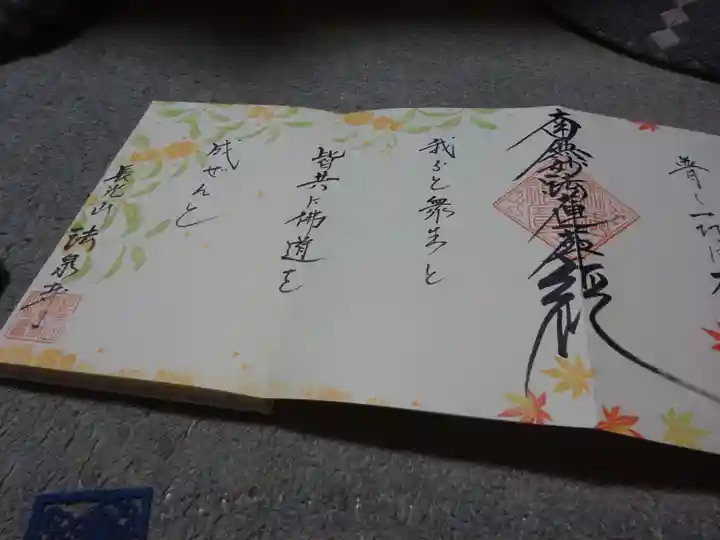 普く一切に
南無妙法蓮華経
我らと衆生と
皆共に佛道を
成ぜんと
長光山 法泉寺